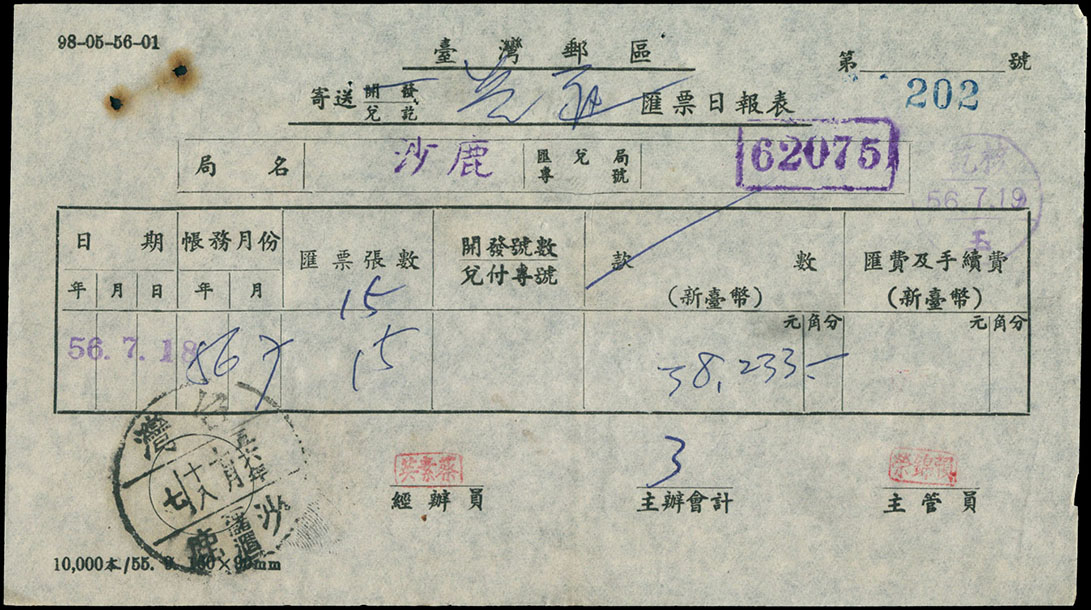 98-05-56-01
臺灣郵區
第 號
202
寄送 開發 兌訖 匯票日報表
局名 沙鹿 匯兌局專號 62075
56.7.19
五
日期 帳務月份 匯票張數 開發號數 兌付專號 款數 匯費及手續費
年 月 日 年 月 15 (新臺幣) (新臺幣)
元 角分 元 角分
56.7.18 56 7 15 38,233.-
灣
沙鹿
3
經辦員 主辦會計 主管員
10,000本/55. mm